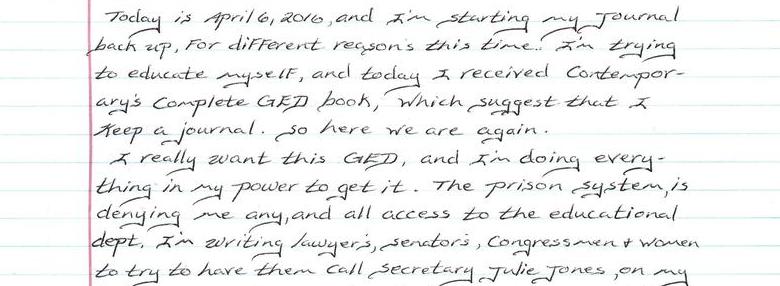 Today is April 6, 2016, and I'm starting my Journal
back up, For different reason's this time.. I'm trying
to educate myself, and today I received Contempor-
ary's Complete GED book, which suggest that I
Keep a journal. So here we are again.
I really want this GED, and I'm doing every-
thing in my power to get it. The prison system, is
denying me any, and all access to the educational
dept. I'm writing lawyer's, senator's, Congressmen + women
to try to have them call Secretary Julie Jones, on my